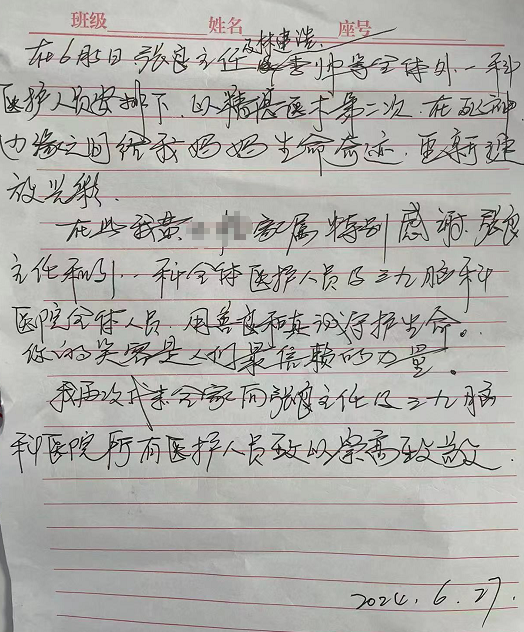 班级 姓名 座号
在6月5日张良主任及林忠浩、李帅等全体外一科
医护人员安排下,以精湛医术第二次在死神
边缘之间给我妈妈生命奇迹,重新绽
放光彩.
在此我黄 家属特别感谢张良
主任和外一科全体医护人员及三九脑科
医院全体人员,用善良和真诚守护生命。
你的笑容是人们最信赖的力量。
我再次代表全家向张良主任及三九脑
科医院所有医护人员致以崇高致敬.
2024.6.27.